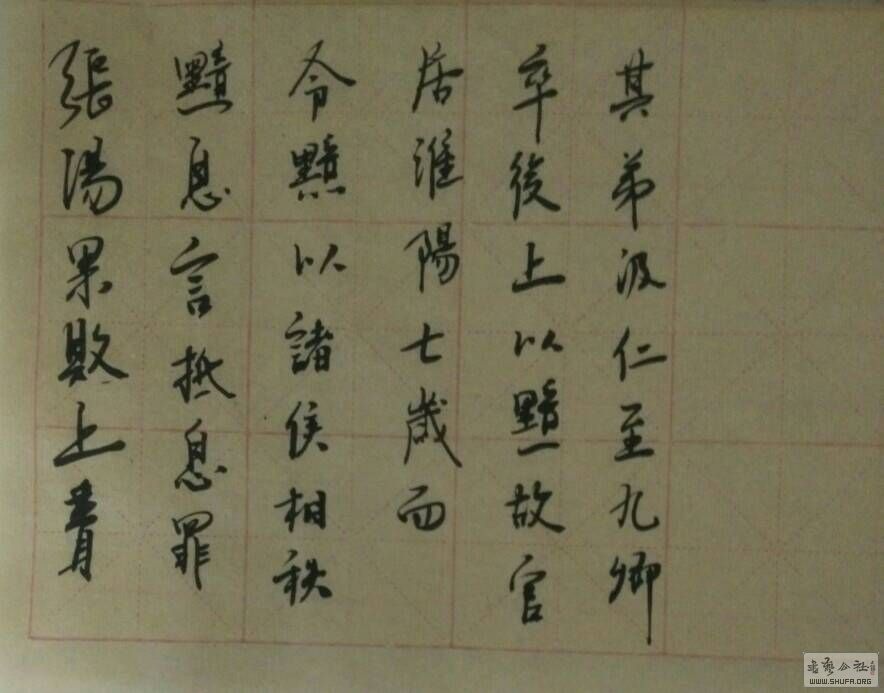 張湯果敗上
黯息言抵息罪
令黯以諸侯相秩
居淮陽七歲而
卒後上以黯故官
其弟汲仁至九卿
書藝公社
WWW.SHUFA.ORG